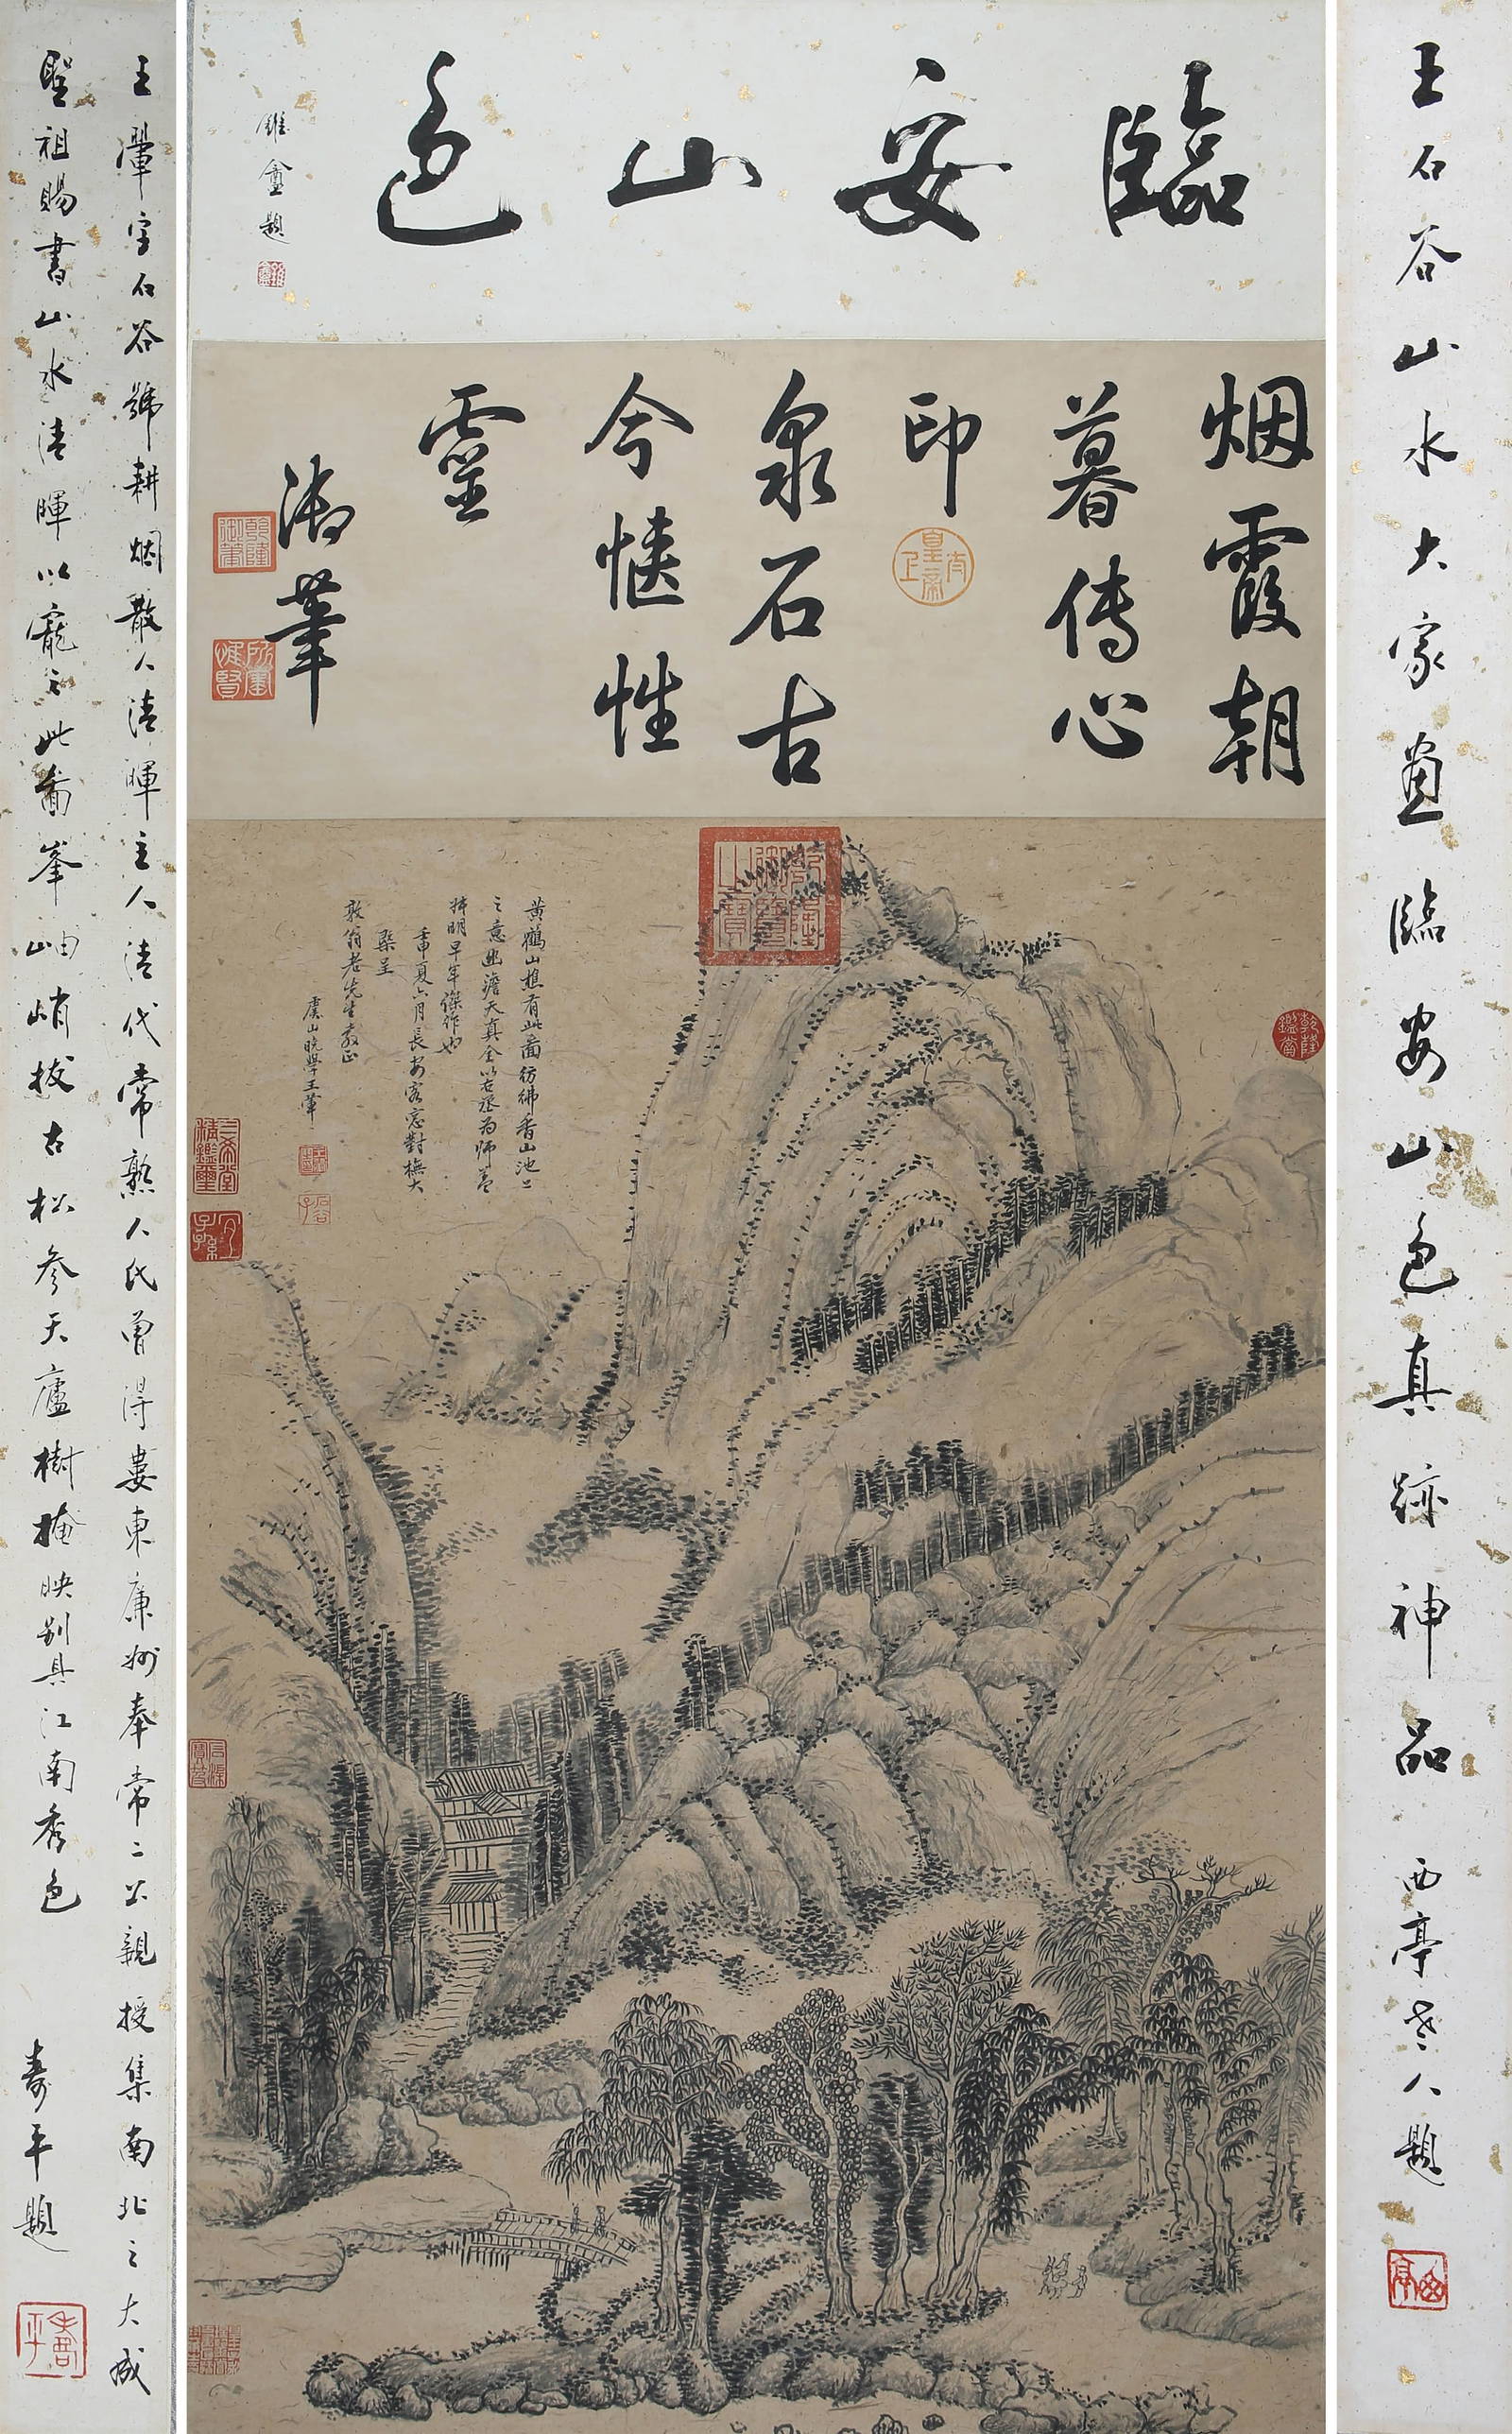 王石谷山水大家畫臨安山色真跡神品 西亭老人題
臨安山色
雒盦題
烟霞朝
暮傳心
印
泉石古
今愜性
靈
御筆
乾隆御覽之寶
乾隆鑑賞
三希堂精鑑璽
宜子孫
黃鶴山樵有此圖仿彿香山池上
之意幽澹天真全以右丞為師蓋
黃鶴早年傑作也
壬申夏六月長安客窓對橅大
槩呈
敦翁老先生教正
虞山晚學王翬
王翬字石谷號耕烟散人清暉主人清代常熟人氏曾得婁東廉州奉常二公親授集南北之大成
聖祖賜書山水清暉以寵之此圖峯岫峭拔古松參天廬樹掩映別具江南秀色
壽平題
壽平